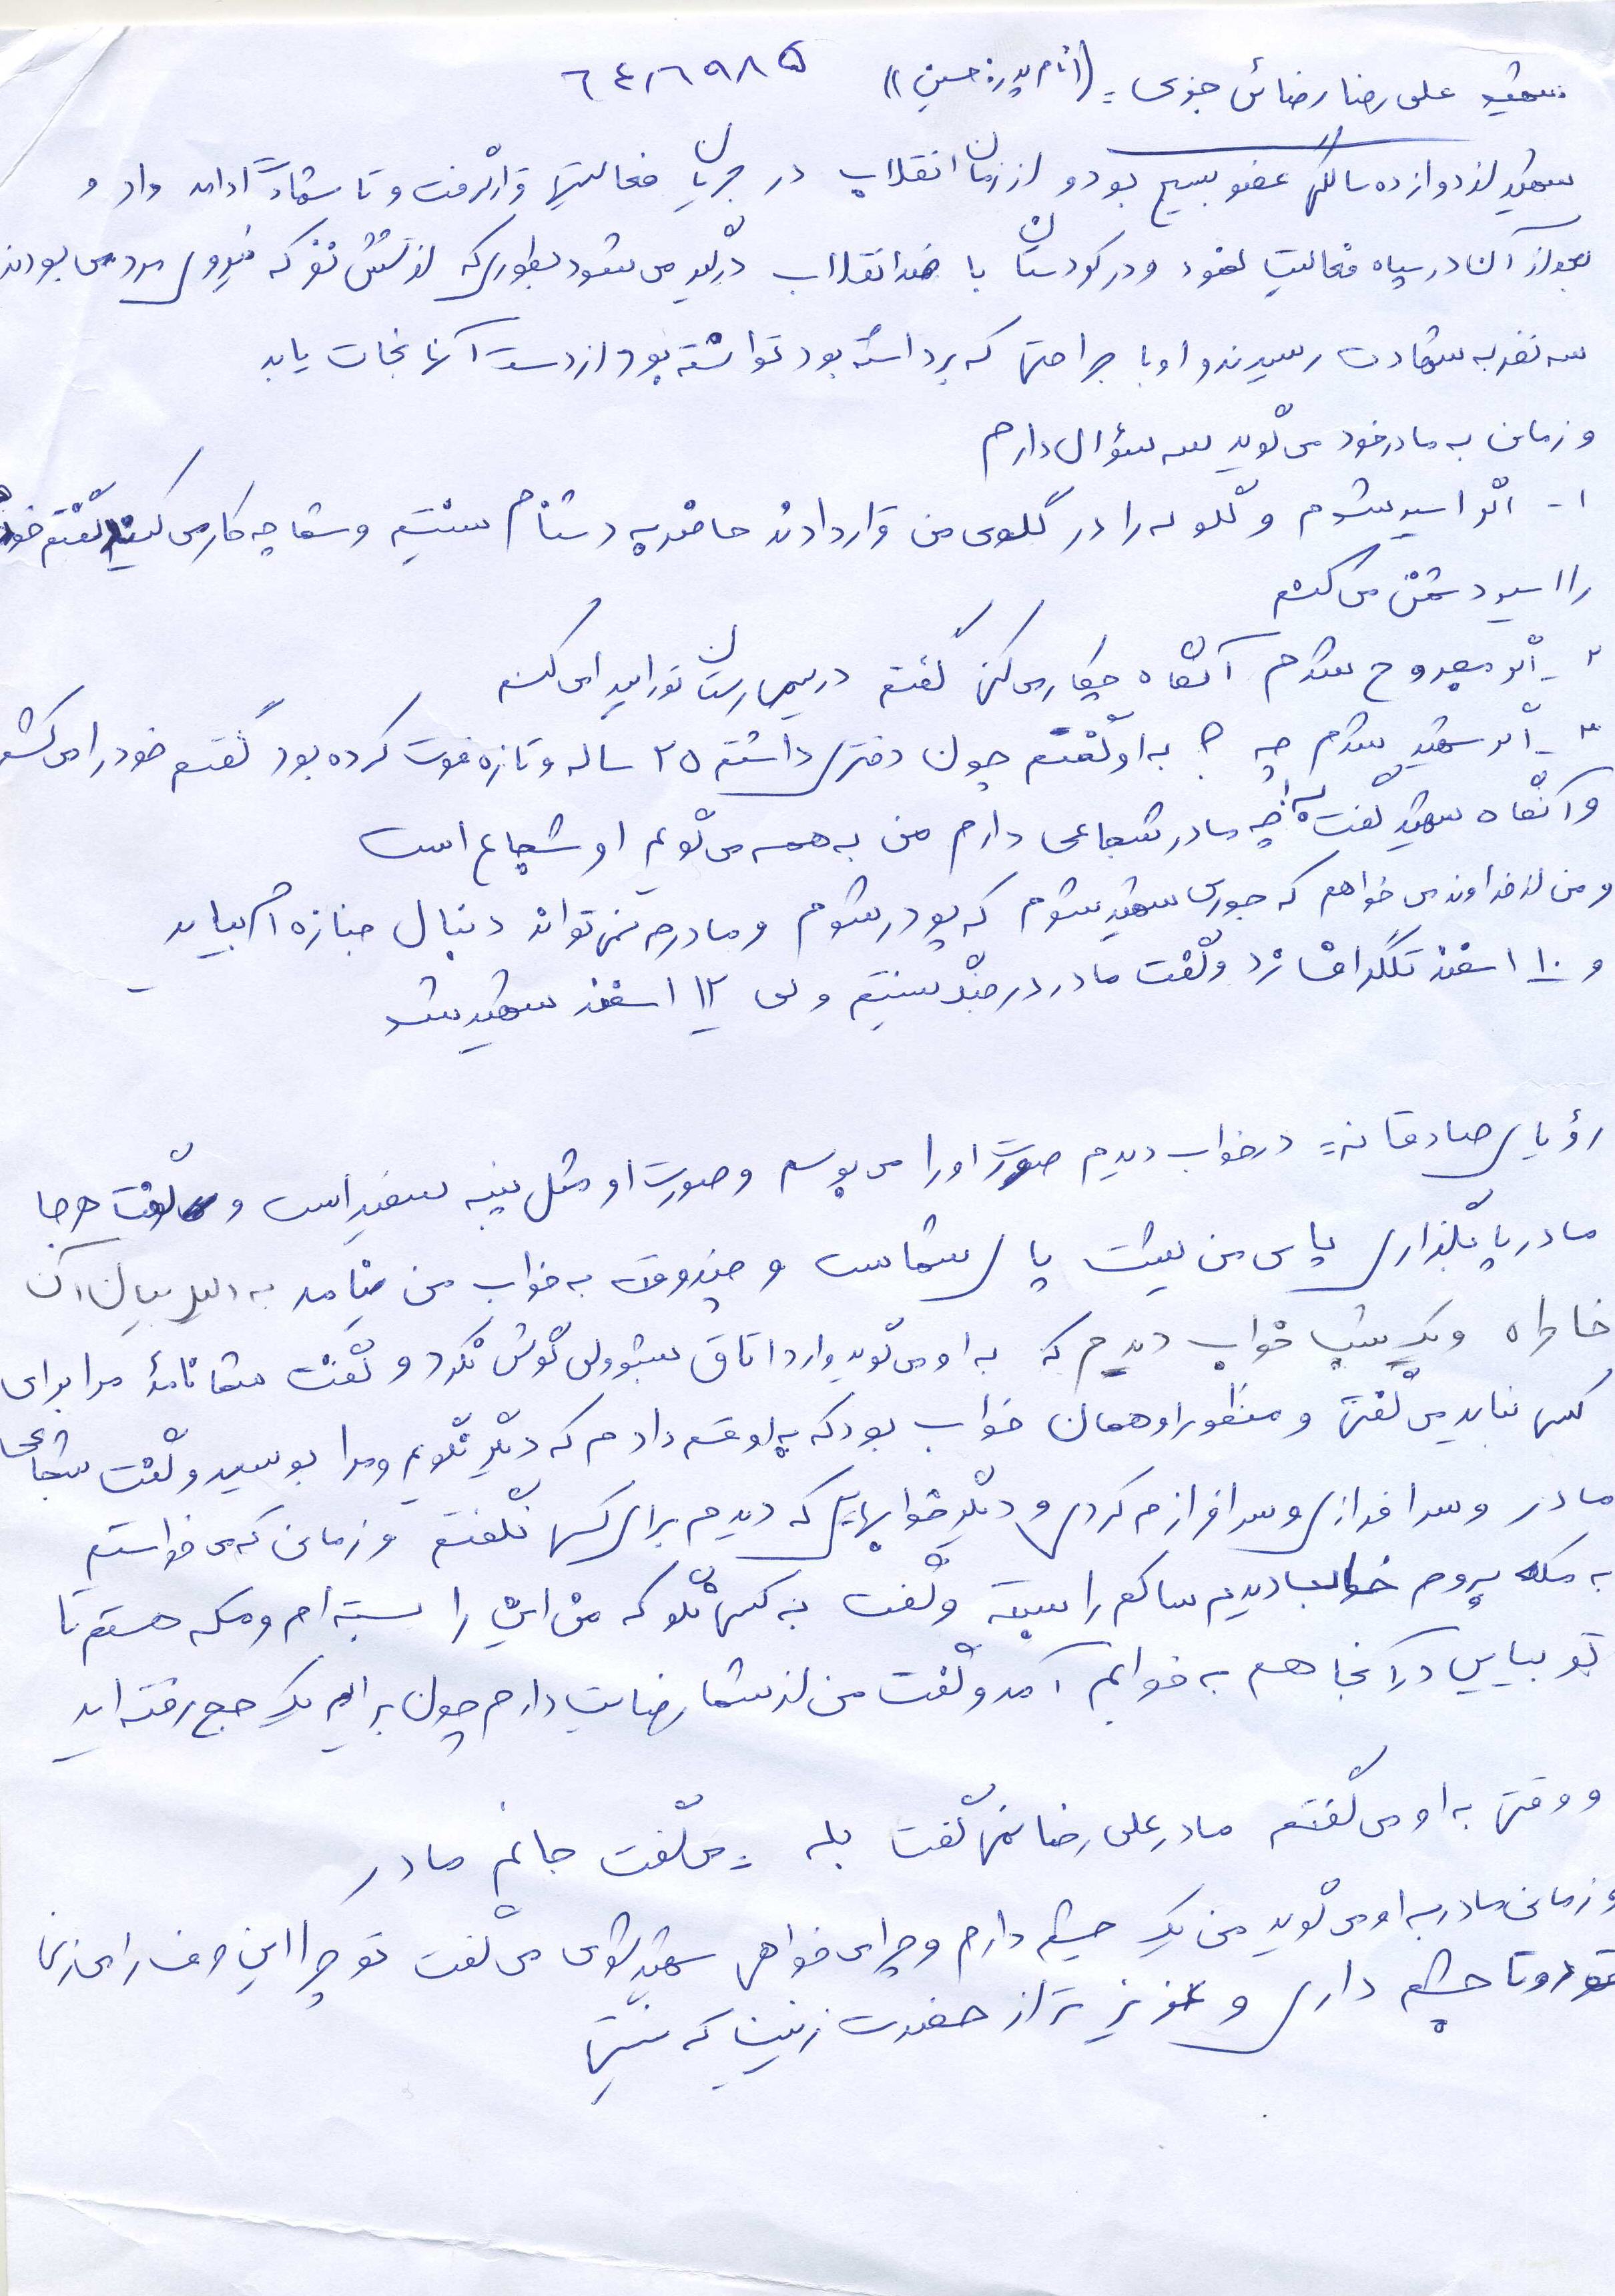 شهید علی رضا رضائی جزی = ((نام پدر: حسین)) ۶۴۱۶۹۸۵
شهید از دوازده سالگی عضو بسیج بود و از زمان انقلاب در جریان فعالیتها قرار گرفت و تا شهادت ادامه داد و
بعد از آن در سپاه فعالیت نمود و در کردستان با ضد انقلاب درگیر می شود بطوری که از شش نفر که نیروی مردمی بودند
سه نفر به شهادت رسیدند و او با جراحتی که برداشته بود توانسته بود از دست آنها نجات یابد
و زمانی به مادر خود می گوید سه سؤال دارم
۱- اگر اسیر شوم و گلوله را در گلوی من قرار دادند حاضر به دشنام نیستم و شما چه کار می کنید گفتم خود
را اسیر دشمن می کنم
۲- اگر مجروح شدم آنگاه چکار می کنی گفتم در بیمارستان تو را پیدا می کنم
۳- اگر شهید شدم چه ؟ به او گفتم چون دختری داشتم ۲۵ ساله و تازه فوت کرده بود گفتم خود را می کشم
و آنگاه شهید گفت به به چه مادر شجاعی دارم من به همه می گویم او شجاع است
و من از خداوند می خواهم که جوری شهید شوم که پودر شوم و مادرم نمی تواند دنبال جنازه ام بیاید
و ۱۰ اسفند تلگراف زد و گفت مادر در جنگ نیستم ولی ۱۲ اسفند شهید شد
رؤیای صادقانه = در خواب دیدم صورت او را می بوسم و صورت او مثل پنبه سفید است و گفت هر جا
مادر پا بگذاری پای من پشت پای شماست و چند وقت به خواب من نیامد به دلیل بیان آن
خاطره و یک شب خواب دیدم که به او می گوید وارد اتاق بشو ولی گوش نکرد و گفت شما نامهٔ مرا برای
کسی نباید می گفتی و منظور او همان خواب بود که به او قسم دادم که دیگر نگویم و مرا بوسید و گفت شجاعی
مادر و سرافرازی و سرافرازم کردی و دیگر خوابهایی که دیدم برای کسی نگفتم و زمانی که می خواستم
به مکه بروم خواب دیدم ساکم را بسته و گفت به کسی نگو که من این را بسته ام و مکه هستم تا
تو بیایی در آنجا هم به خوابم آمد و گفت من از شما رضایت دارم چون برایم یک حج رفته اید
و وقتی به او می گفتم مادر علی رضا نمی گفت بله = می گفت جانم مادر
و زمانی مادر به او می گوید من یک چشم دارم و چرا می خواهی شهید شوی می گفت تو چرا این حرف را می زنی
تو دو تا چشم داری و عزیز تر از حضرت زینب که نیستی